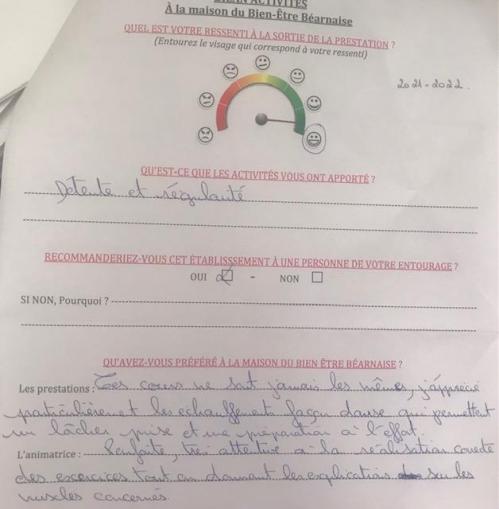 BILAN ACTIVITÉS
À la maison du Bien-Être Béarnaise
QUEL EST VOTRE RESSENTI À LA SORTIE DE LA PRESTATION ?
(Entourez le visage qui correspond à votre ressenti)
2021-2022.
QU'EST-CE QUE LES ACTIVITÉS VOUS ONT APPORTÉ ?
Détente et régularité
RECOMMANDERIEZ-VOUS CET ÉTABLISSSEMENT À UNE PERSONNE DE VOTRE ENTOURAGE ?
OUI ☑ - NON ☐
SI NON, Pourquoi ?
QU'AVEZ-VOUS PRÉFÉRÉ À LA MAISON DU BIEN ÊTRE BÉARNAISE ?
Les prestations : Les cours ne sont jamais les mêmes, j'apprécie
particulièrement les echauffements façon danse qui permettent
un lâcher prise et une préparation à l'effort.
L'animatrice : Parfaite, très attentive à la réalisation correcte
des exercices tout en donnant les explications sur les
muscles concernés